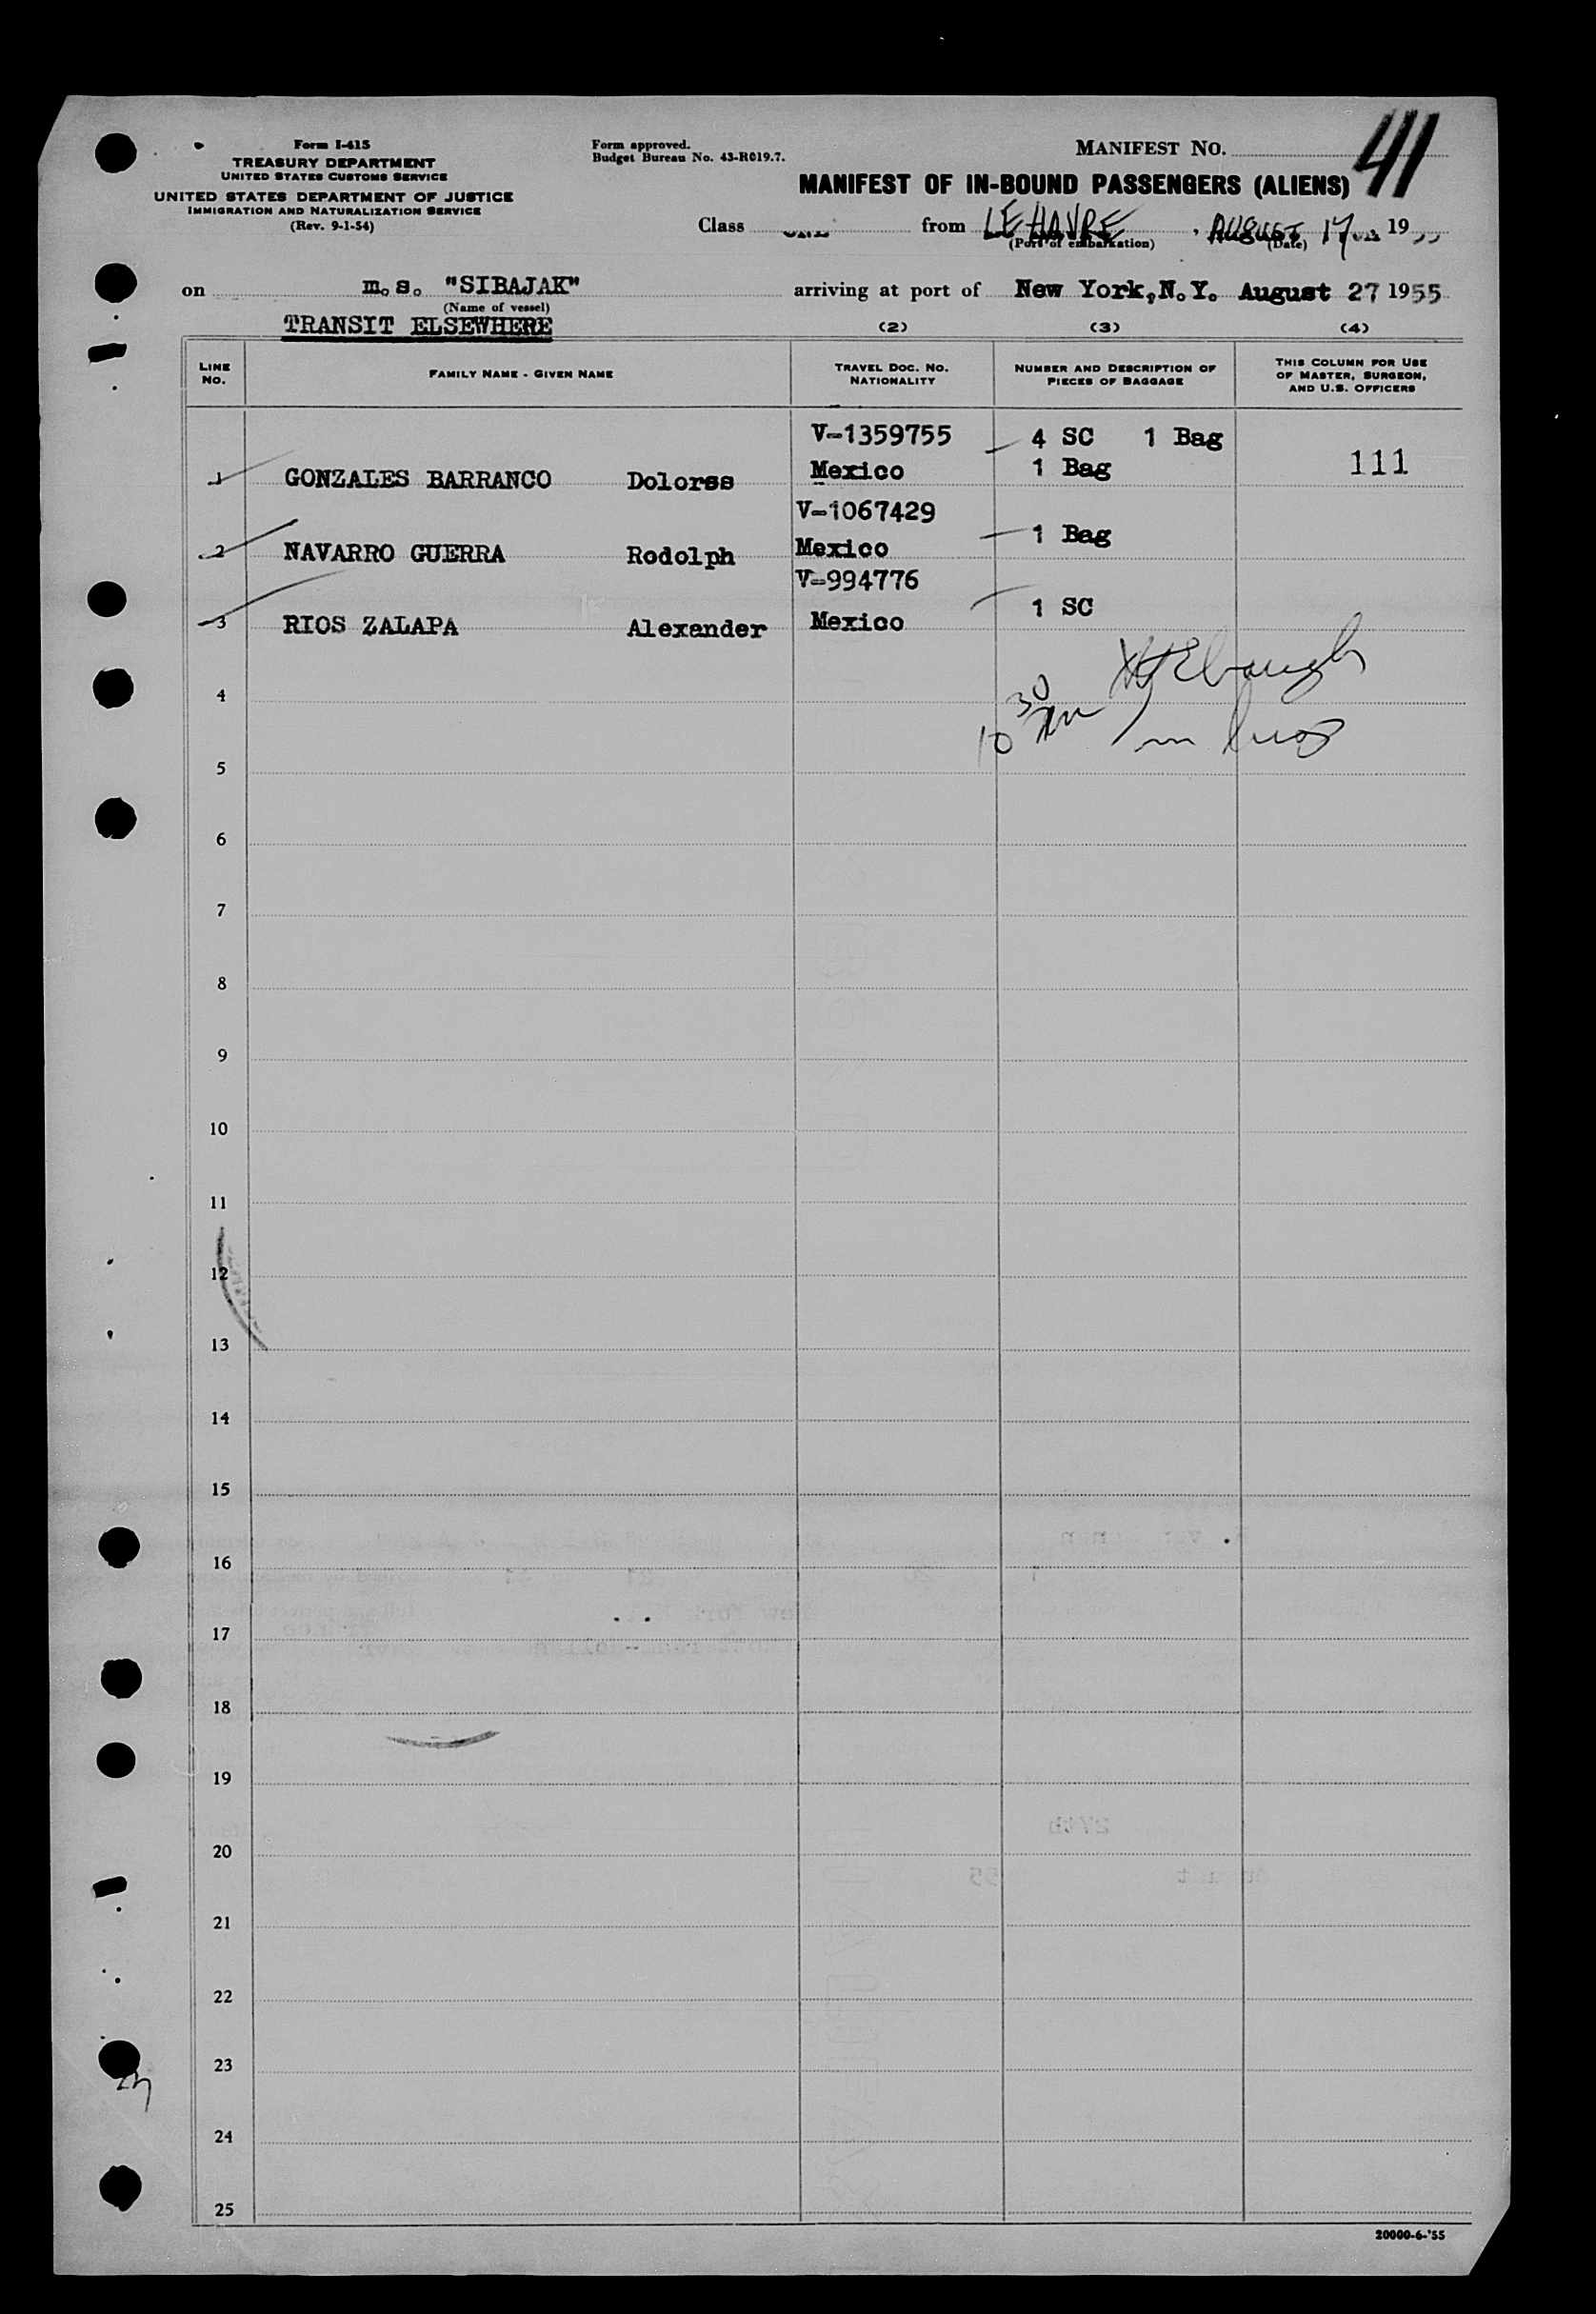 Form I-415
TREASURY DEPARTMENT
UNITED STATES CUSTOMS SERVICE
UNITED STATES DEPARTMENT OF JUSTICE
IMMIGRATION AND NATURALIZATION SERVICE
(Rev. 9-1-54)
Form approved.
Budget Bureau No. 43-R019.7.
MANIFEST NO. 41
MANIFEST OF IN-BOUND PASSENGERS (ALIENS)
Class ONE from LE HAVRE, AUGUST 17 19
(Port of embarkation) (Date)
on m.s. "SIBAJAK" arriving at port of New York,N.Y. August 27 1955
(Name of vessel)
TRANSIT ELSEWHERE (2) (3) (4)
LINE NO. FAMILY NAME - GIVEN NAME TRAVEL DOC. NO. NATIONALITY NUMBER AND DESCRIPTION OF PIECES OF BAGGAGE THIS COLUMN FOR USE OF MASTER, SURGEON, AND U.S. OFFICERS
V-1359755 4 SC 1 Bag
1 GONZALES BARRANCO Dolorss Mexico 1 Bag 111
V-1067429
2 NAVARRO GUERRA Rodolph Mexico 1 Bag
V-994776
3 RIOS ZALAPA Alexander Mexico 1 SC
4
10 30
5
6
7
8
9
10
11
12
13
14
15
16
17
18
19
20
21
22
23
24
25
20000-6-'55